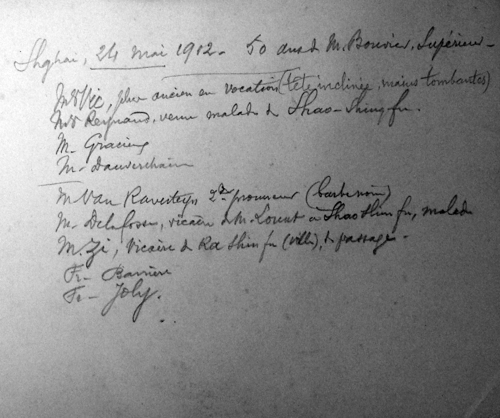 Shghai, 24 mai 1912 - 50 ans de M. Bouvier, Supérieur -
plus ancien en vocation (tête inclinée, mains tombantes)
Mgr Reynaud, venu malade de Shao-Shing-fu.
M. Gracieux
M. Dauverchain
M. Van Raverteyn 2d procureur (barbe noire)
M. Delafosse, vicaire de M. Louat à Shao Shin fu, malade
M. Zi, Vicaire de Ka Shin fu (ville), de passage -
Fr - Barrière
Fr - Joly.